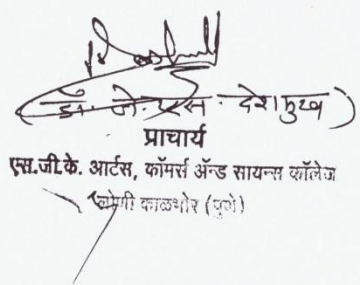 (डॉ. जे. एस. देशमुख)
प्राचार्य
एस.जी.के. आर्टस, कॉमर्स ॲन्ड सायन्स कॉलेज
लोणी काळभोर (पुणे)